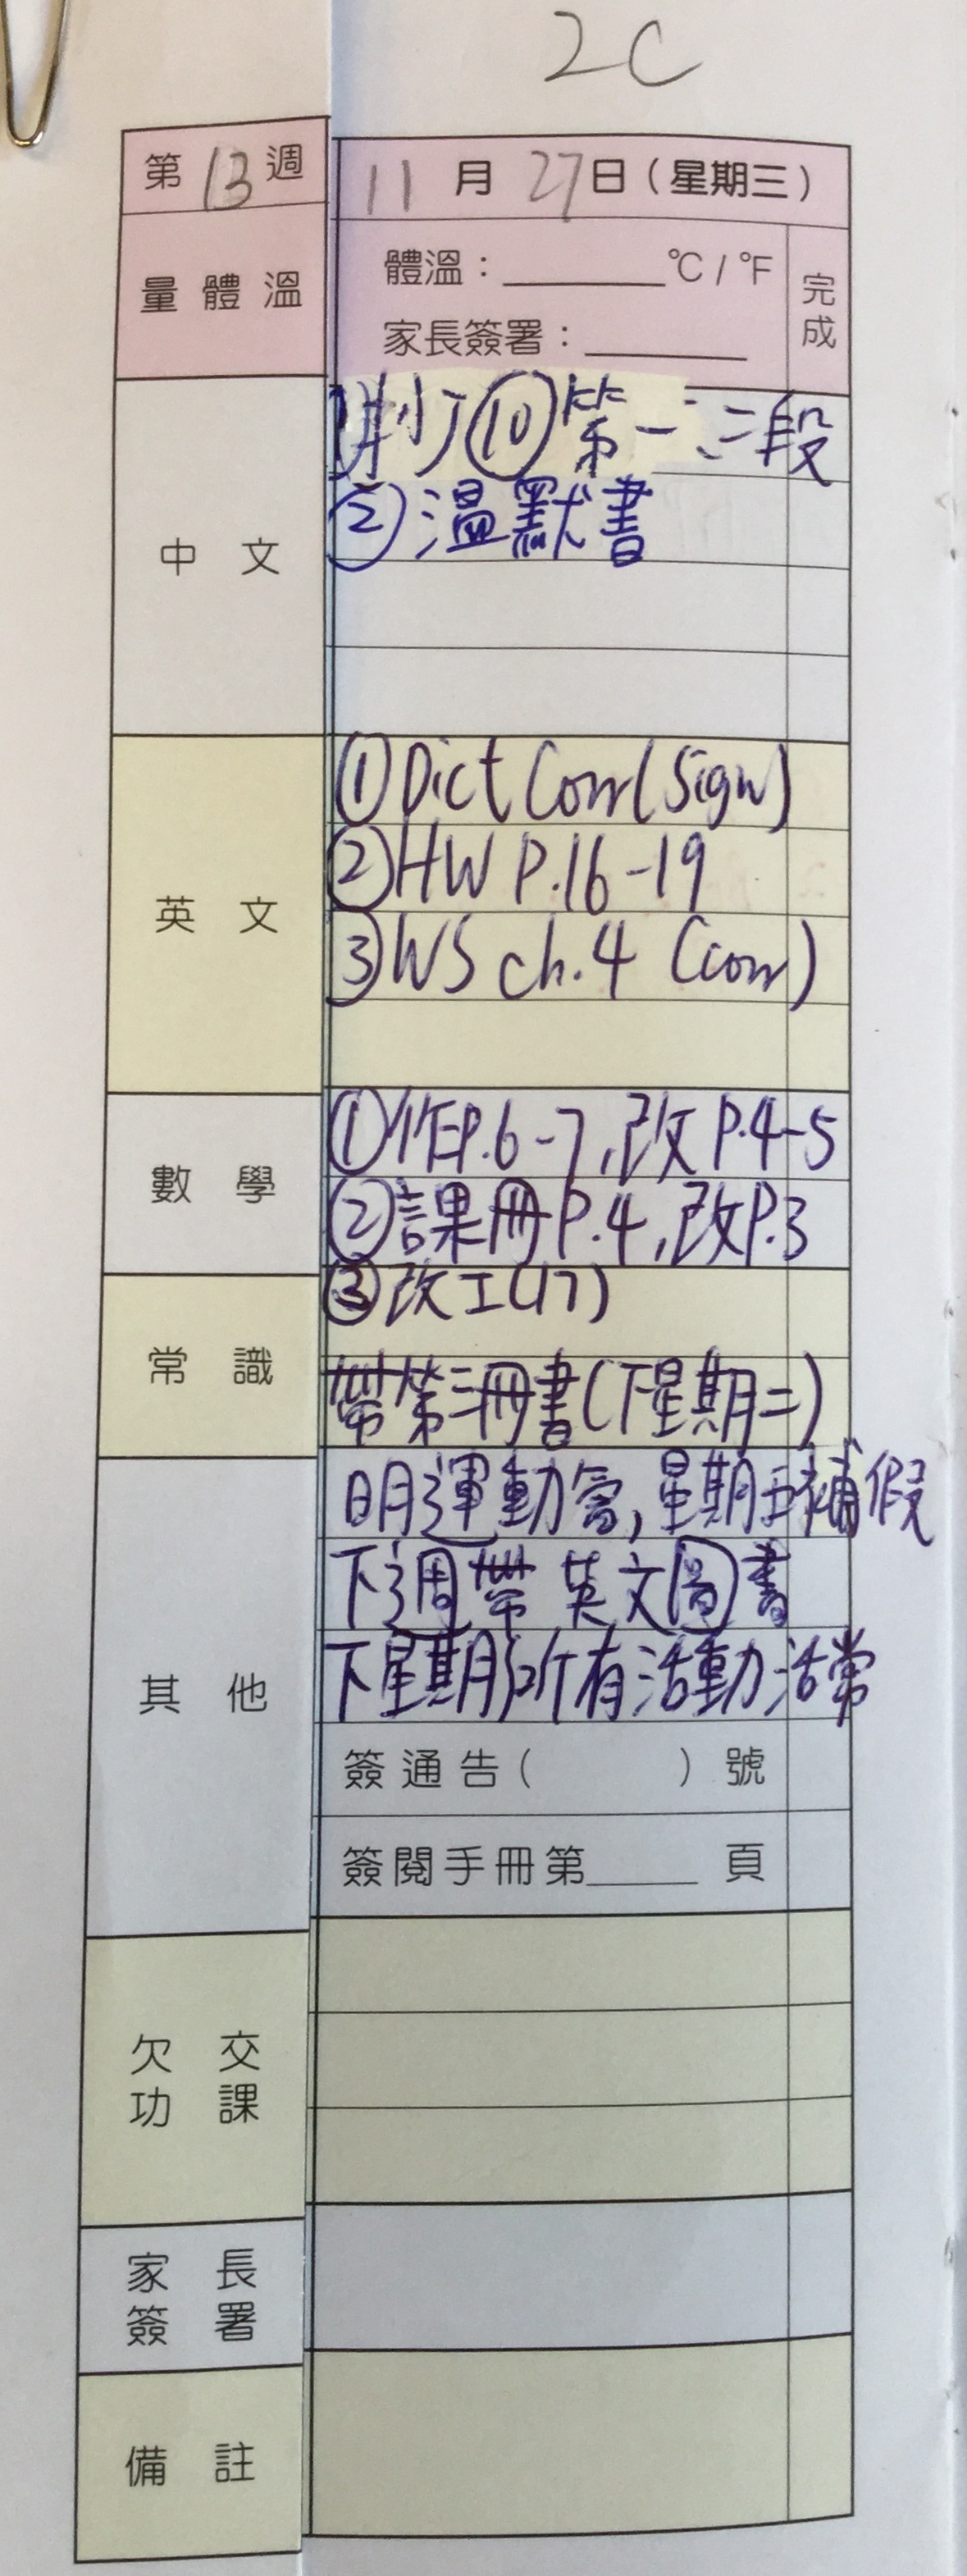 2C
第13週 11月27日(星期三)
量體溫 體溫：______℃/℉ 完成
家長簽署：______
中文
⑩第一、二段
②溫默書
英文
①Dict Corr(Sign)
②HW P.16-19
③WS ch.4 (corr)
數學
①作P.6-7,改P.4-5
②課冊P.4,改P.3
③改工(17)
常識
帶第三冊書(下星期二)
其他
明運動會,星期五補假
下週帶英文圖書
下星期所有活動活常
簽通告( )號
簽閱手冊第____頁
欠交功課
家長簽署
備註